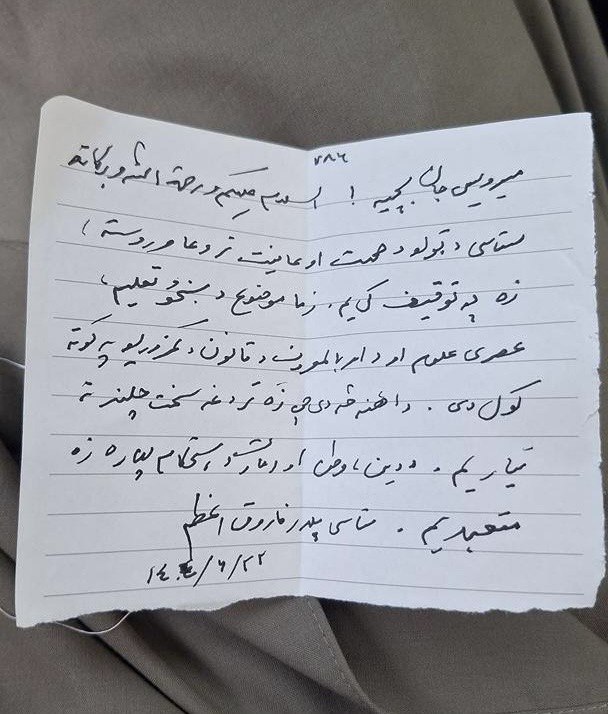 ۷۸۶
میرویس جان بچیه ! السلام علیکم ورحمة الله وبرکاته
ستاسی د ټولو د صحت او عافیت تر دعا وروسته ،
زه په توقیف کی یم . زما موضوع د ښځو تعلیم ،
عصری علوم او د امر بالمعروف د قانون د کمزوریو په ګوته
کول دی . دا هغه څه دی چی زه تر دغه سخت چلند ته
تیار یم . د دین ، وطن او د استحکام لپاره زه
متعهد یم . ستاسی پلار فاروق اعظم
۱٤۰٤/۶/۲۲